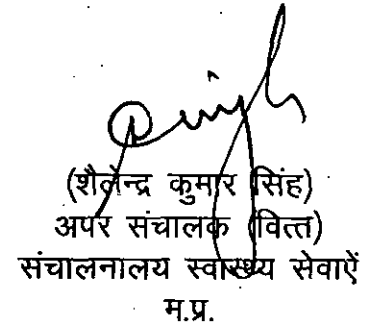 (शैलेन्द्र कुमार सिंह)
अपर संचालक (वित्त)
संचालनालय स्वास्थ्य सेवाऐं
म.प्र.